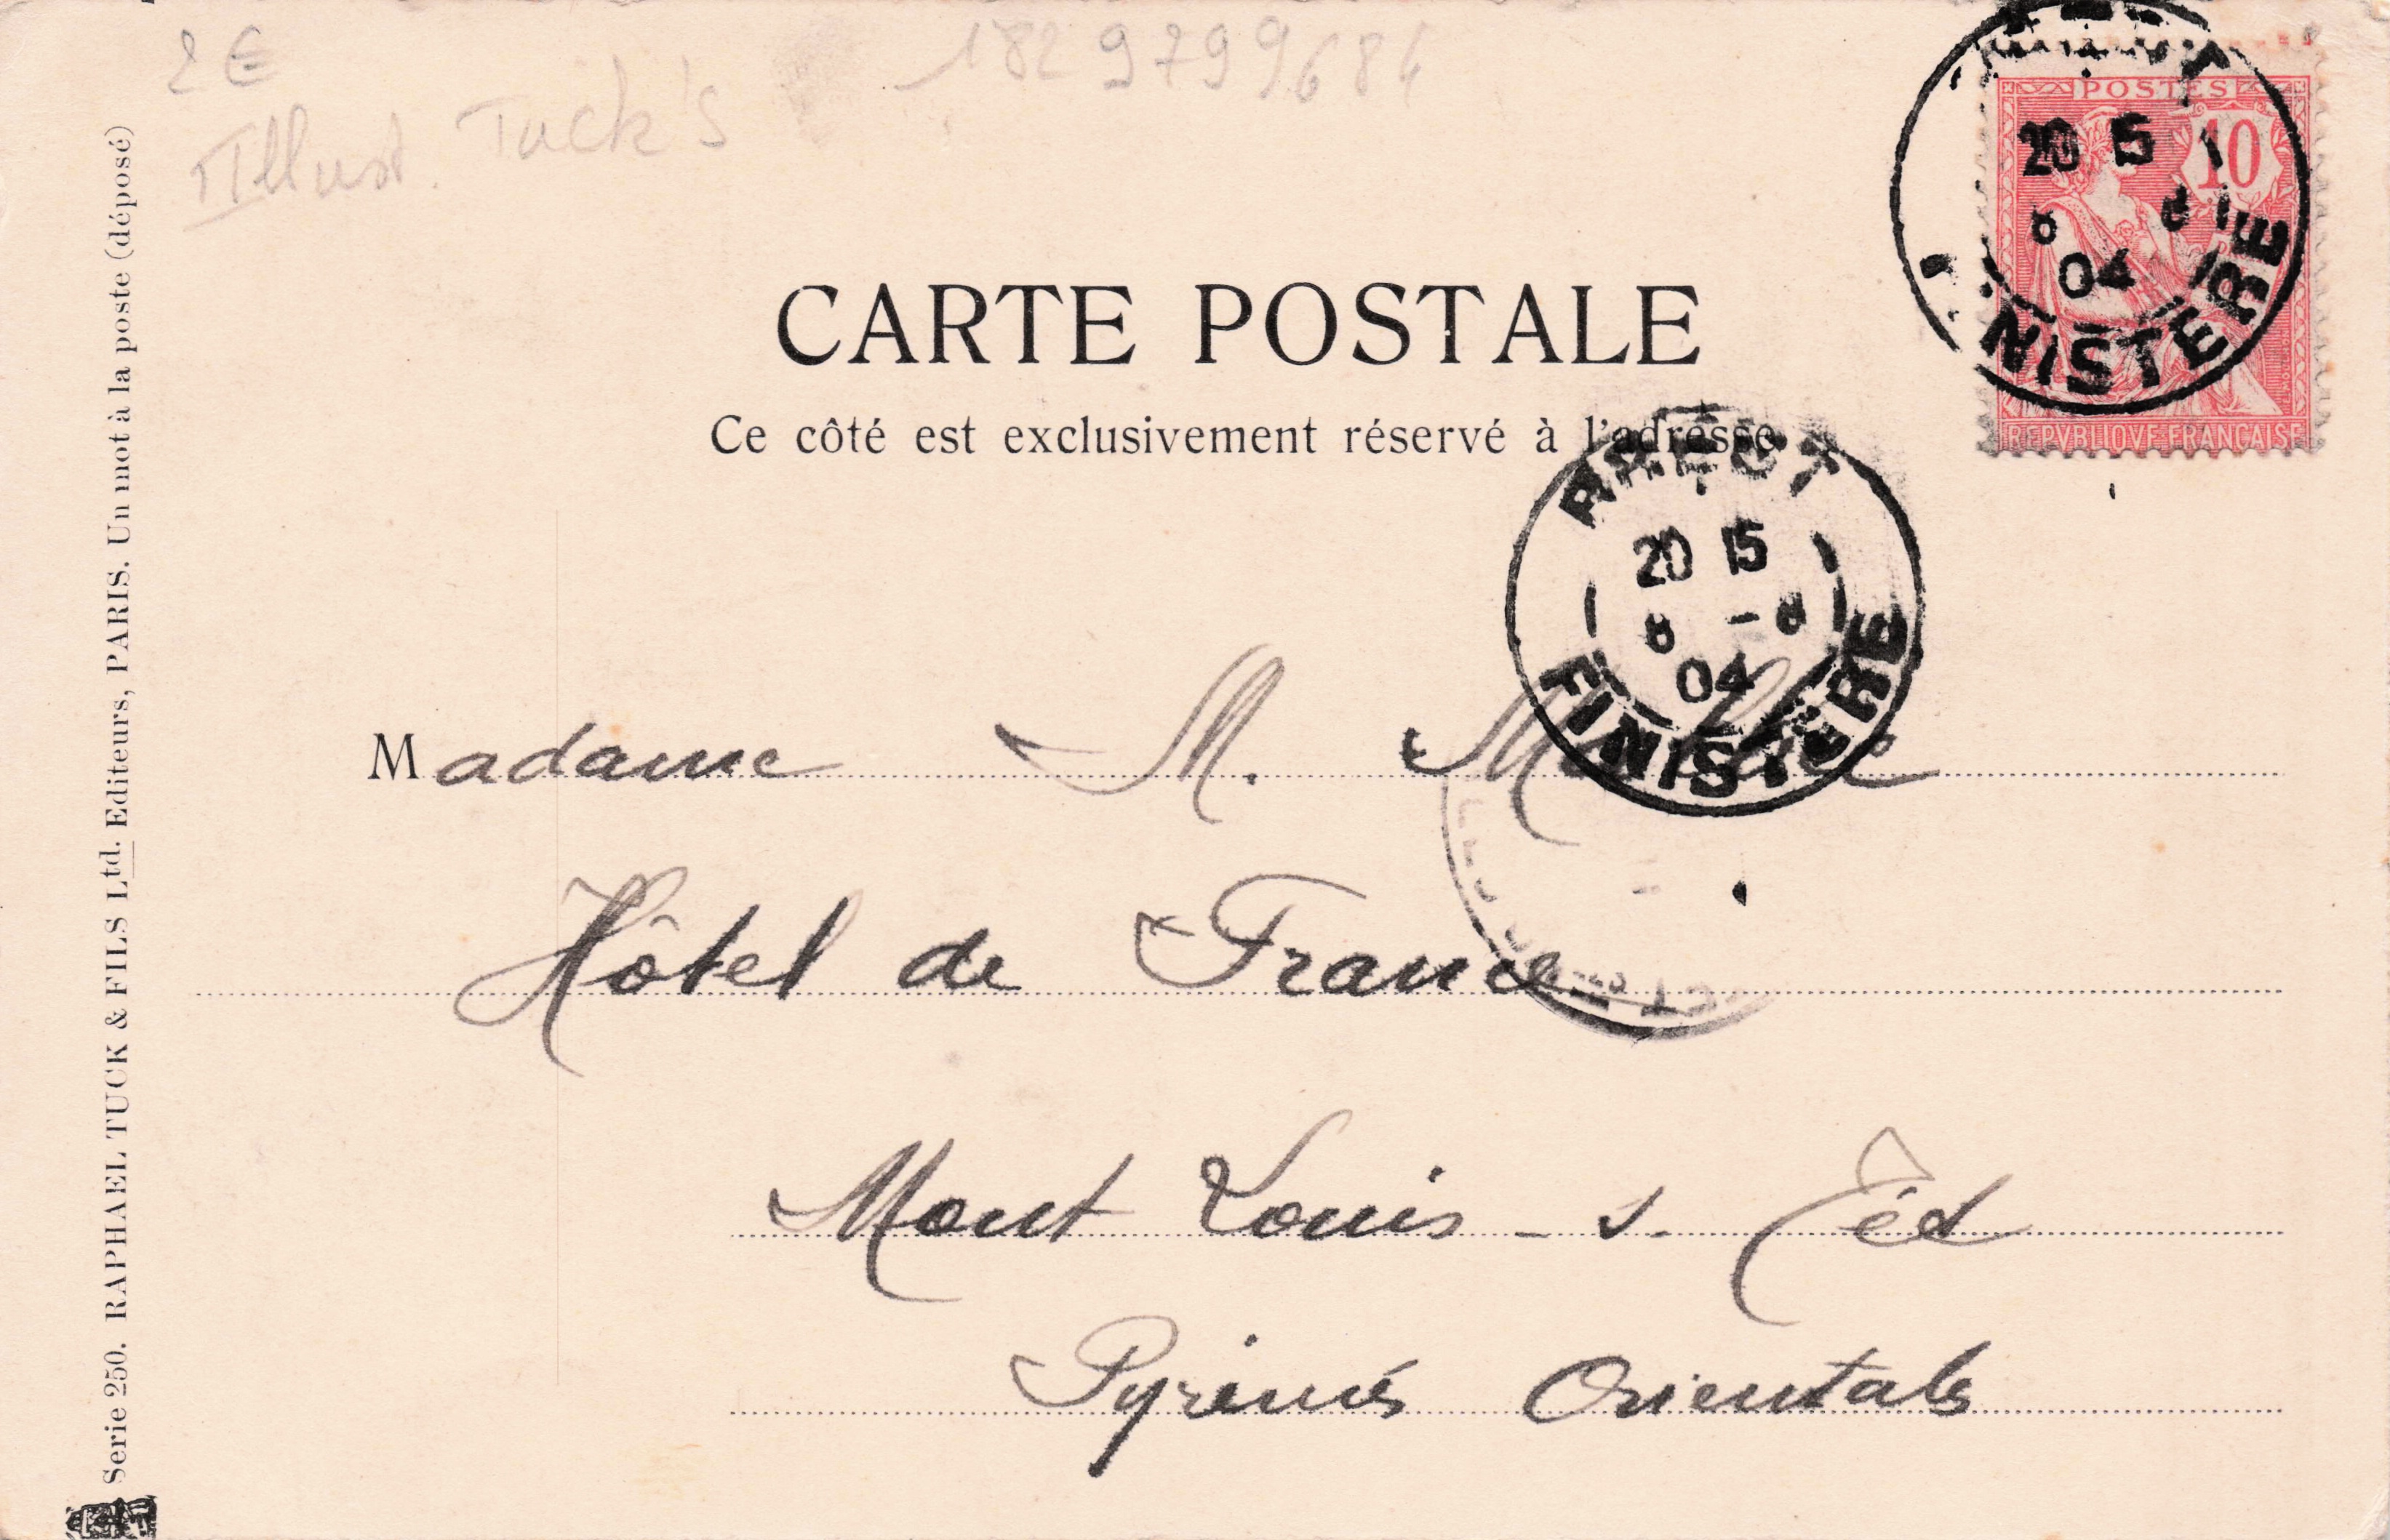 2 €
Illust. Tuck's
1829799684
POSTES
10
20 15
8 8
04
NISTERE
REPVBLIQVE FRANÇAISE
CARTE POSTALE
Ce côté est exclusivement réservé à l'adresse
BREST
20 15
8 - 8
04
FINISTERE
Madame M.
Hôtel de France
Mont Louis - s.
Pyrénés Orientals
Serie 250. RAPHAEL TUCK & FILS Ltd. Editeurs, PARIS. Un mot à la poste (déposé)